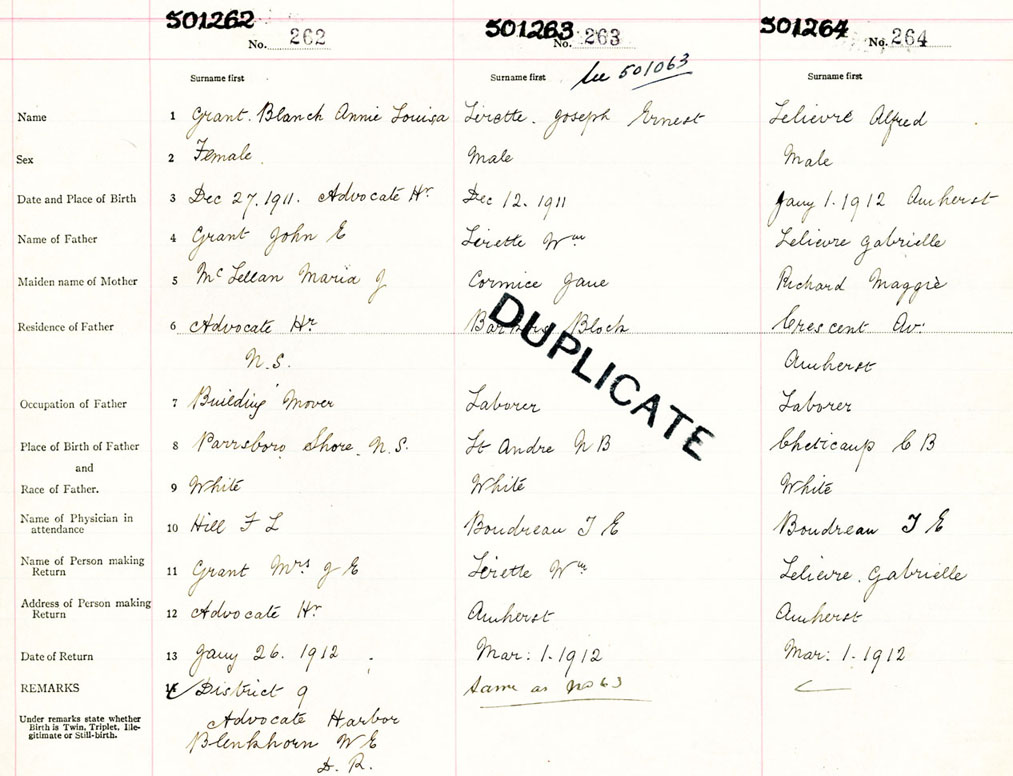 501262 501263 501264
No. 262 No. 263 No. 264
Surname first Surname first See 501063 Surname first
Name 1 Grant. Blanch Annie Louisa Lirette. Joseph Ernest Lelievre Alfred
Sex 2 Female. Male Male
Date and Place of Birth 3 Dec 27. 1911. Advocate Hr. Dec 12. 1911 Jany 1. 1912 Amherst
Name of Father 4 Grant John E Lirette Wm Lelievre Gabrielle
Maiden name of Mother 5 McLellan Maria J Cormice Jane Richard Maggie
Residence of Father 6 Advocate Hr Block Crescent Av:
N.S. Amherst
DUPLICATE
Occupation of Father 7 Building Mover Laborer Laborer
Place of Birth of Father 8 Parrsboro Shore. N.S. St Andre N B Cheticamp C B
and
Race of Father. 9 White White White
Name of Physician in
attendance 10 Hill F L Boudreau T E Boudreau T E
Name of Person making
Return 11 Grant Mrs J E Lirette Wm Lelievre. Gabrielle
Address of Person making
Return 12 Advocate Hr Amherst Amherst
Date of Return 13 Jany 26. 1912 Mar: 1. 1912 Mar: 1. 1912
REMARKS 14 District 9 Same as No 63
Under remarks state whether
Birth is Twin, Triplet, Ille-
gitimate or Still-birth.
Advocate Harbor
Blenkhorn W E
D. R.